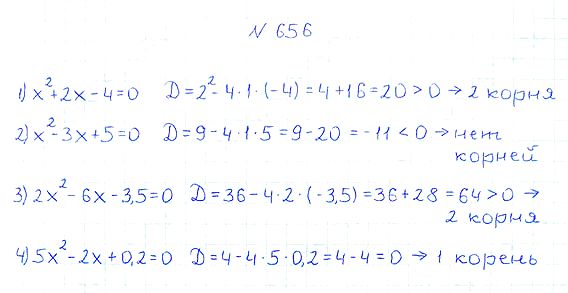 N 656
1) x²+2x-4=0 D=2²-4·1·(-4)=4+16=20>0→2 корня
2) x²-3x+5=0 D=9-4·1·5=9-20=-11<0→нет
корней
3) 2x²-6x-3,5=0 D=36-4·2·(-3,5)=36+28=64>0→
2 корня
4) 5x²-2x+0,2=0 D=4-4·5·0,2=4-4=0→1 корень